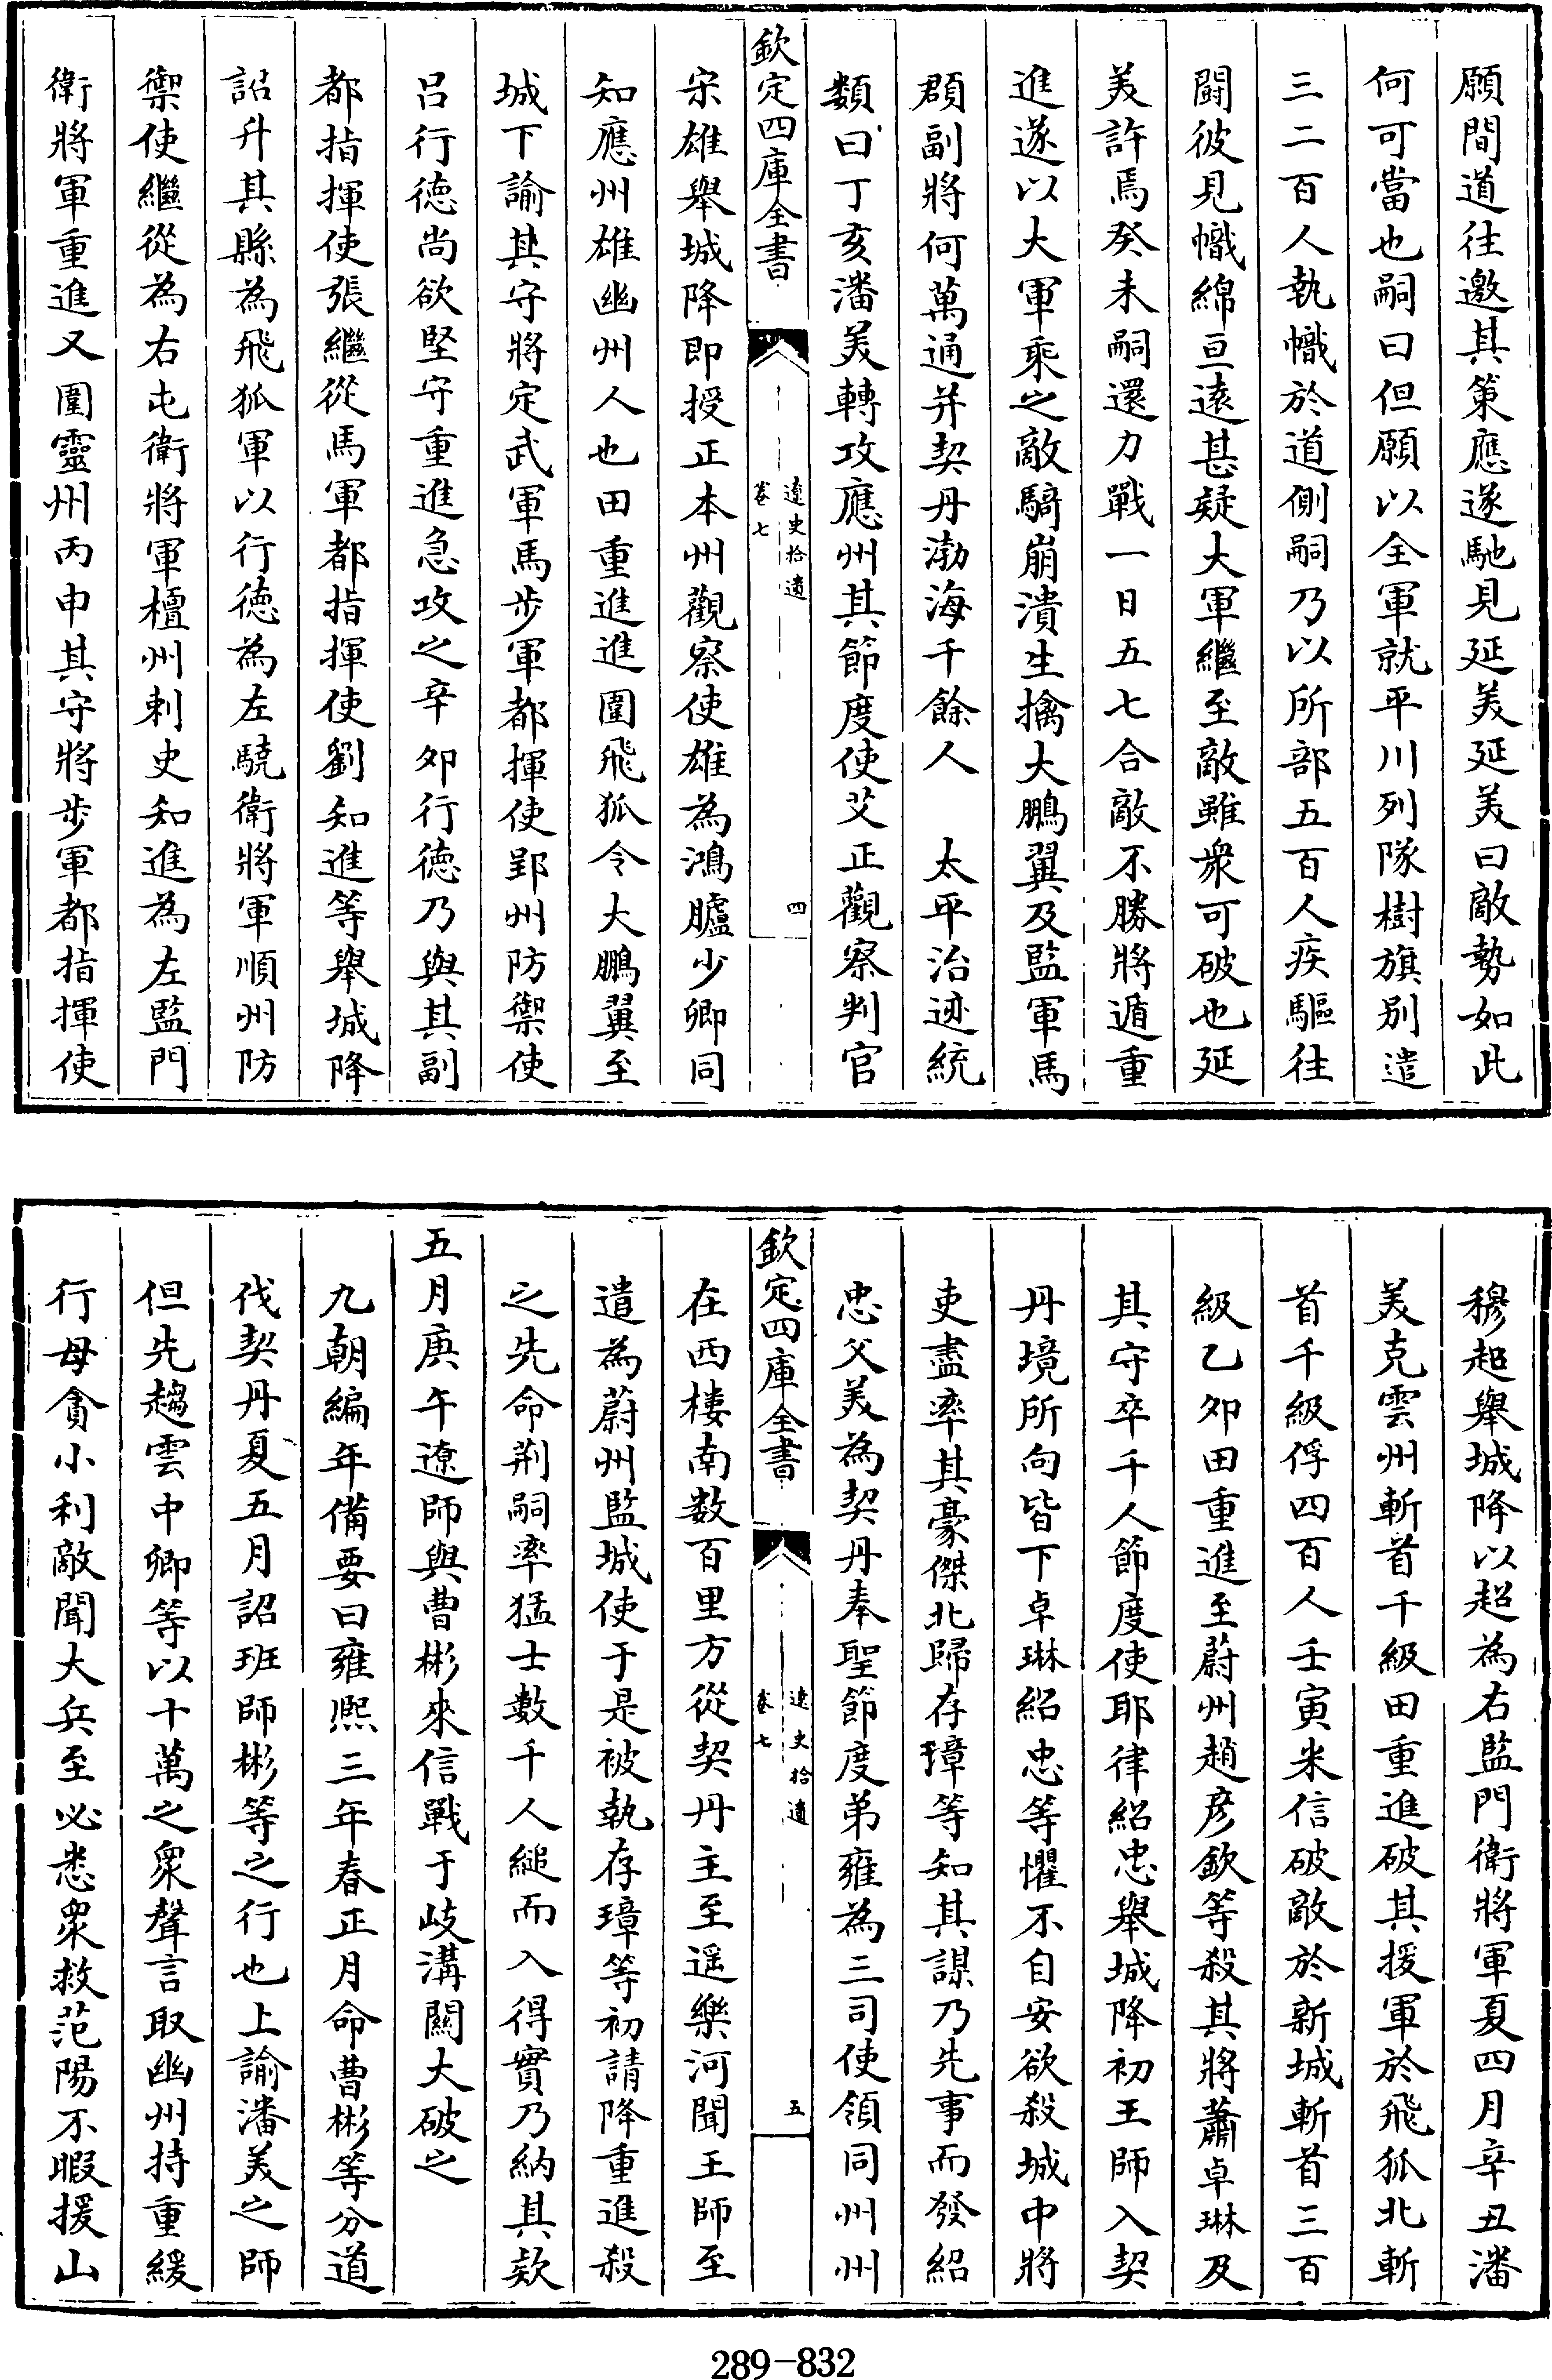 願間道往邀其策應遂馳見延美延美曰敵勢如此
何可當也嗣曰但願以全軍就平川列隊樹旗别遣
三二百人執幟於道側嗣乃以所部五百人疾驅往
鬬彼見幟綿亘遠甚疑大軍繼至敵雖衆可破也延
美許焉癸未嗣還力戰一日五七合敵不勝將遁重
進遂以大軍乘之敵騎崩潰生擒大鵬翼及監軍馬
頵副將何萬通并契丹渤海千餘人　太平治迹統
類曰丁亥潘美轉攻應州其節度使艾正觀察判官
欽定四庫全書
遼史拾遺
卷七
四
宋雄舉城降即授正本州觀察使雄為鴻臚少卿同
知應州雄幽州人也田重進進圍飛狐令大鵬翼至
城下諭其守將定武軍馬步軍都揮使郢州防禦使
吕行德尚欲堅守重進急攻之辛夘行德乃與其副
都指揮使張繼從馬軍都指揮使劉知進等舉城降
詔升其縣為飛狐軍以行德為左驍衛將軍順州防
禦使繼從為右屯衛將軍檀州刺史知進為左監門
衛將軍重進又圍靈州丙申其守將步軍都指揮使
穆超舉城降以超為右監門衛將軍夏四月辛丑潘
美克雲州斬首千級田重進破其援軍於飛狐北斬
首千級俘四百人壬寅米信破敵於新城斬首三百
級乙夘田重進至蔚州趙彦欽等殺其將蕭卓琳及
其守卒千人節度使耶律紹忠舉城降初王師入契
丹境所向皆下卓琳紹忠等懼不自安欲殺城中將
吏盡率其豪傑北歸存璋等知其謀乃先事而發紹
忠父美為契丹奉聖節度弟雍為三司使領同州州
欽定四庫全書
遼史拾遺
卷七
五
在西樓南數百里方從契丹主至遥樂河聞王師至
遣為蔚州監城使于是被執存璋等初請降重進殺
之先命荆嗣率猛士數千人縋而入得實乃納其欵
五月庚午遼師與曹彬來信戰于岐溝關大破之
九朝編年備要曰雍熙三年春正月命曹彬等分道
伐契丹夏五月詔班師彬等之行也上諭潘美之師
但先趨雲中卿等以十萬之衆聲言取幽州持重緩
行毋貪小利敵聞大兵至必悉衆救范陽不暇援山
289-832